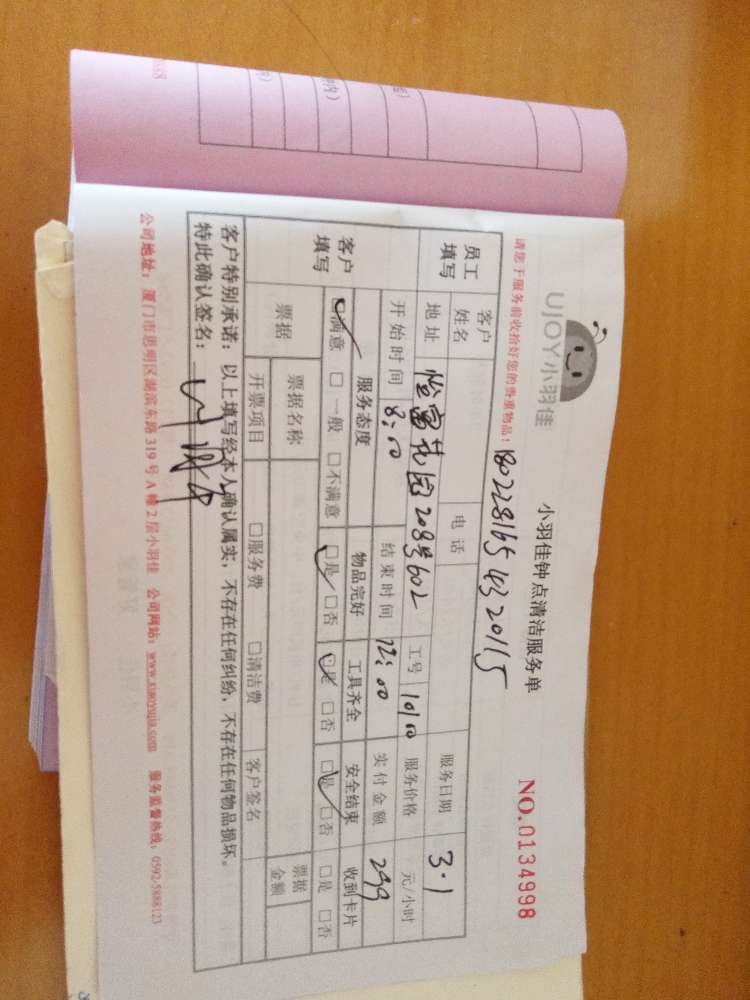 UJOY小羽佳
小羽佳钟点清洁服务单
NO.0134998
请您于服务前收拾好您的贵重物品!
员工填写
客户姓名
电话
服务日期 3.1
地址 怡富花园208号602
工号 10100
服务价格 元/小时
开始时间 8:00
结束时间 12:00
实付金额 299
客户填写
服务态度 物品完好 工具齐全 安全结束 收到卡片
□满意 □一般 □不满意 □是 □否 □是 □否 □是 □否 □是 □否
票据 票据名称 票据金额
开票项目 □服务费 □清洁费 客户签名
客户特别承诺：以上填写经本人确认属实，不存在任何纠纷，不存在任何物品损坏。
特此确认签名：
公司地址：厦门市思明区湖滨东路319号A幢2层小羽佳 公司网站：www.xiaoyujia.com 服务监督热线：0592-5888123